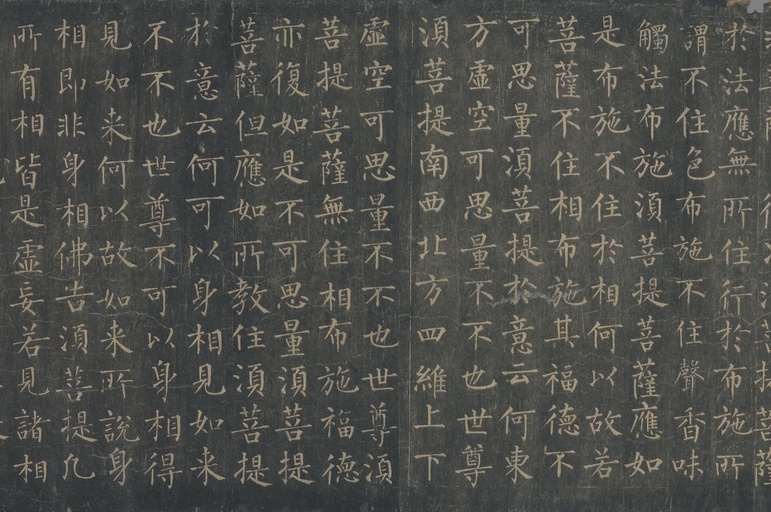 於法應無所住行於布施所
謂不住色布施不住聲香味
觸法布施須菩提菩薩應如
是布施不住於相何以故若
菩薩不住相布施其福德不
可思量須菩提於意云何東
方虛空可思量不不也世尊
須菩提南西北方四維上下
虛空可思量不不也世尊須
菩提菩薩無住相布施福德
亦復如是不可思量須菩提
菩薩但應如所教住須菩提
於意云何可以身相見如来
不不也世尊不可以身相得
見如来何以故如来所說身
相即非身相佛告須菩提凡
所有相皆是虛妄若見諸相